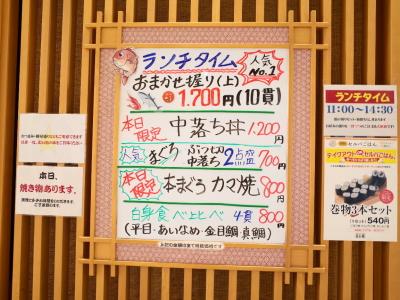 ランチタイム
人気
No.1
おまかせ握り(上)
1,700円(10貫)
本日
限定
中落ち丼 1,200円
人気
まぐろ
ぶつ切り
中落ち
2点盛 700円
本日
限定
本まぐろ カマ焼 800円
白身食べよヒベ 4貫 800円
(平目・あいなめ・金目鯛・真鯛)
本日、
焼き物あります。
ランチタイム
11:00〜14:30
セルバごはん
テイクアウト
セルバごはん
巻物3本セット
540円